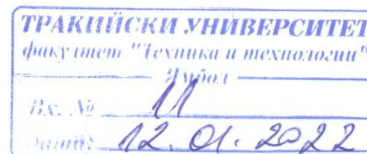 ТРАКИЙСКИ УНИВЕРСИТЕТ
факултет "Техника и технологии"
Ямбол
Вх. № 11
12. 01. 2022